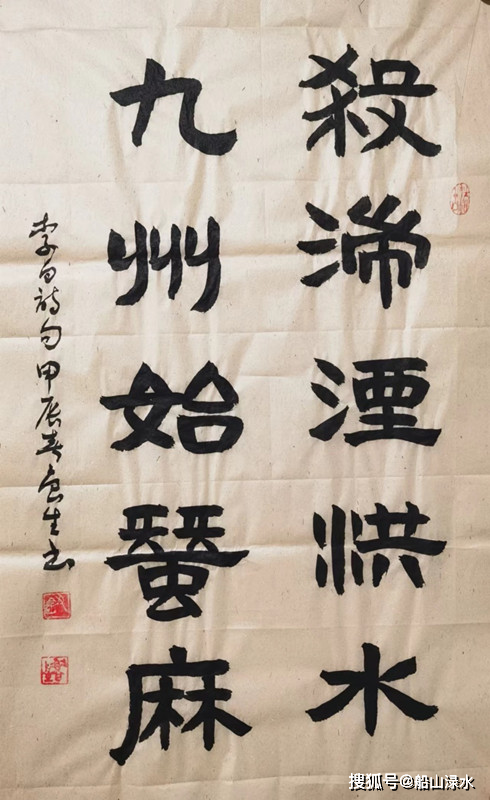 殺湍湮洪水
九州始蠶麻
李白詩句甲辰春生书
搜狐号@船山渌水